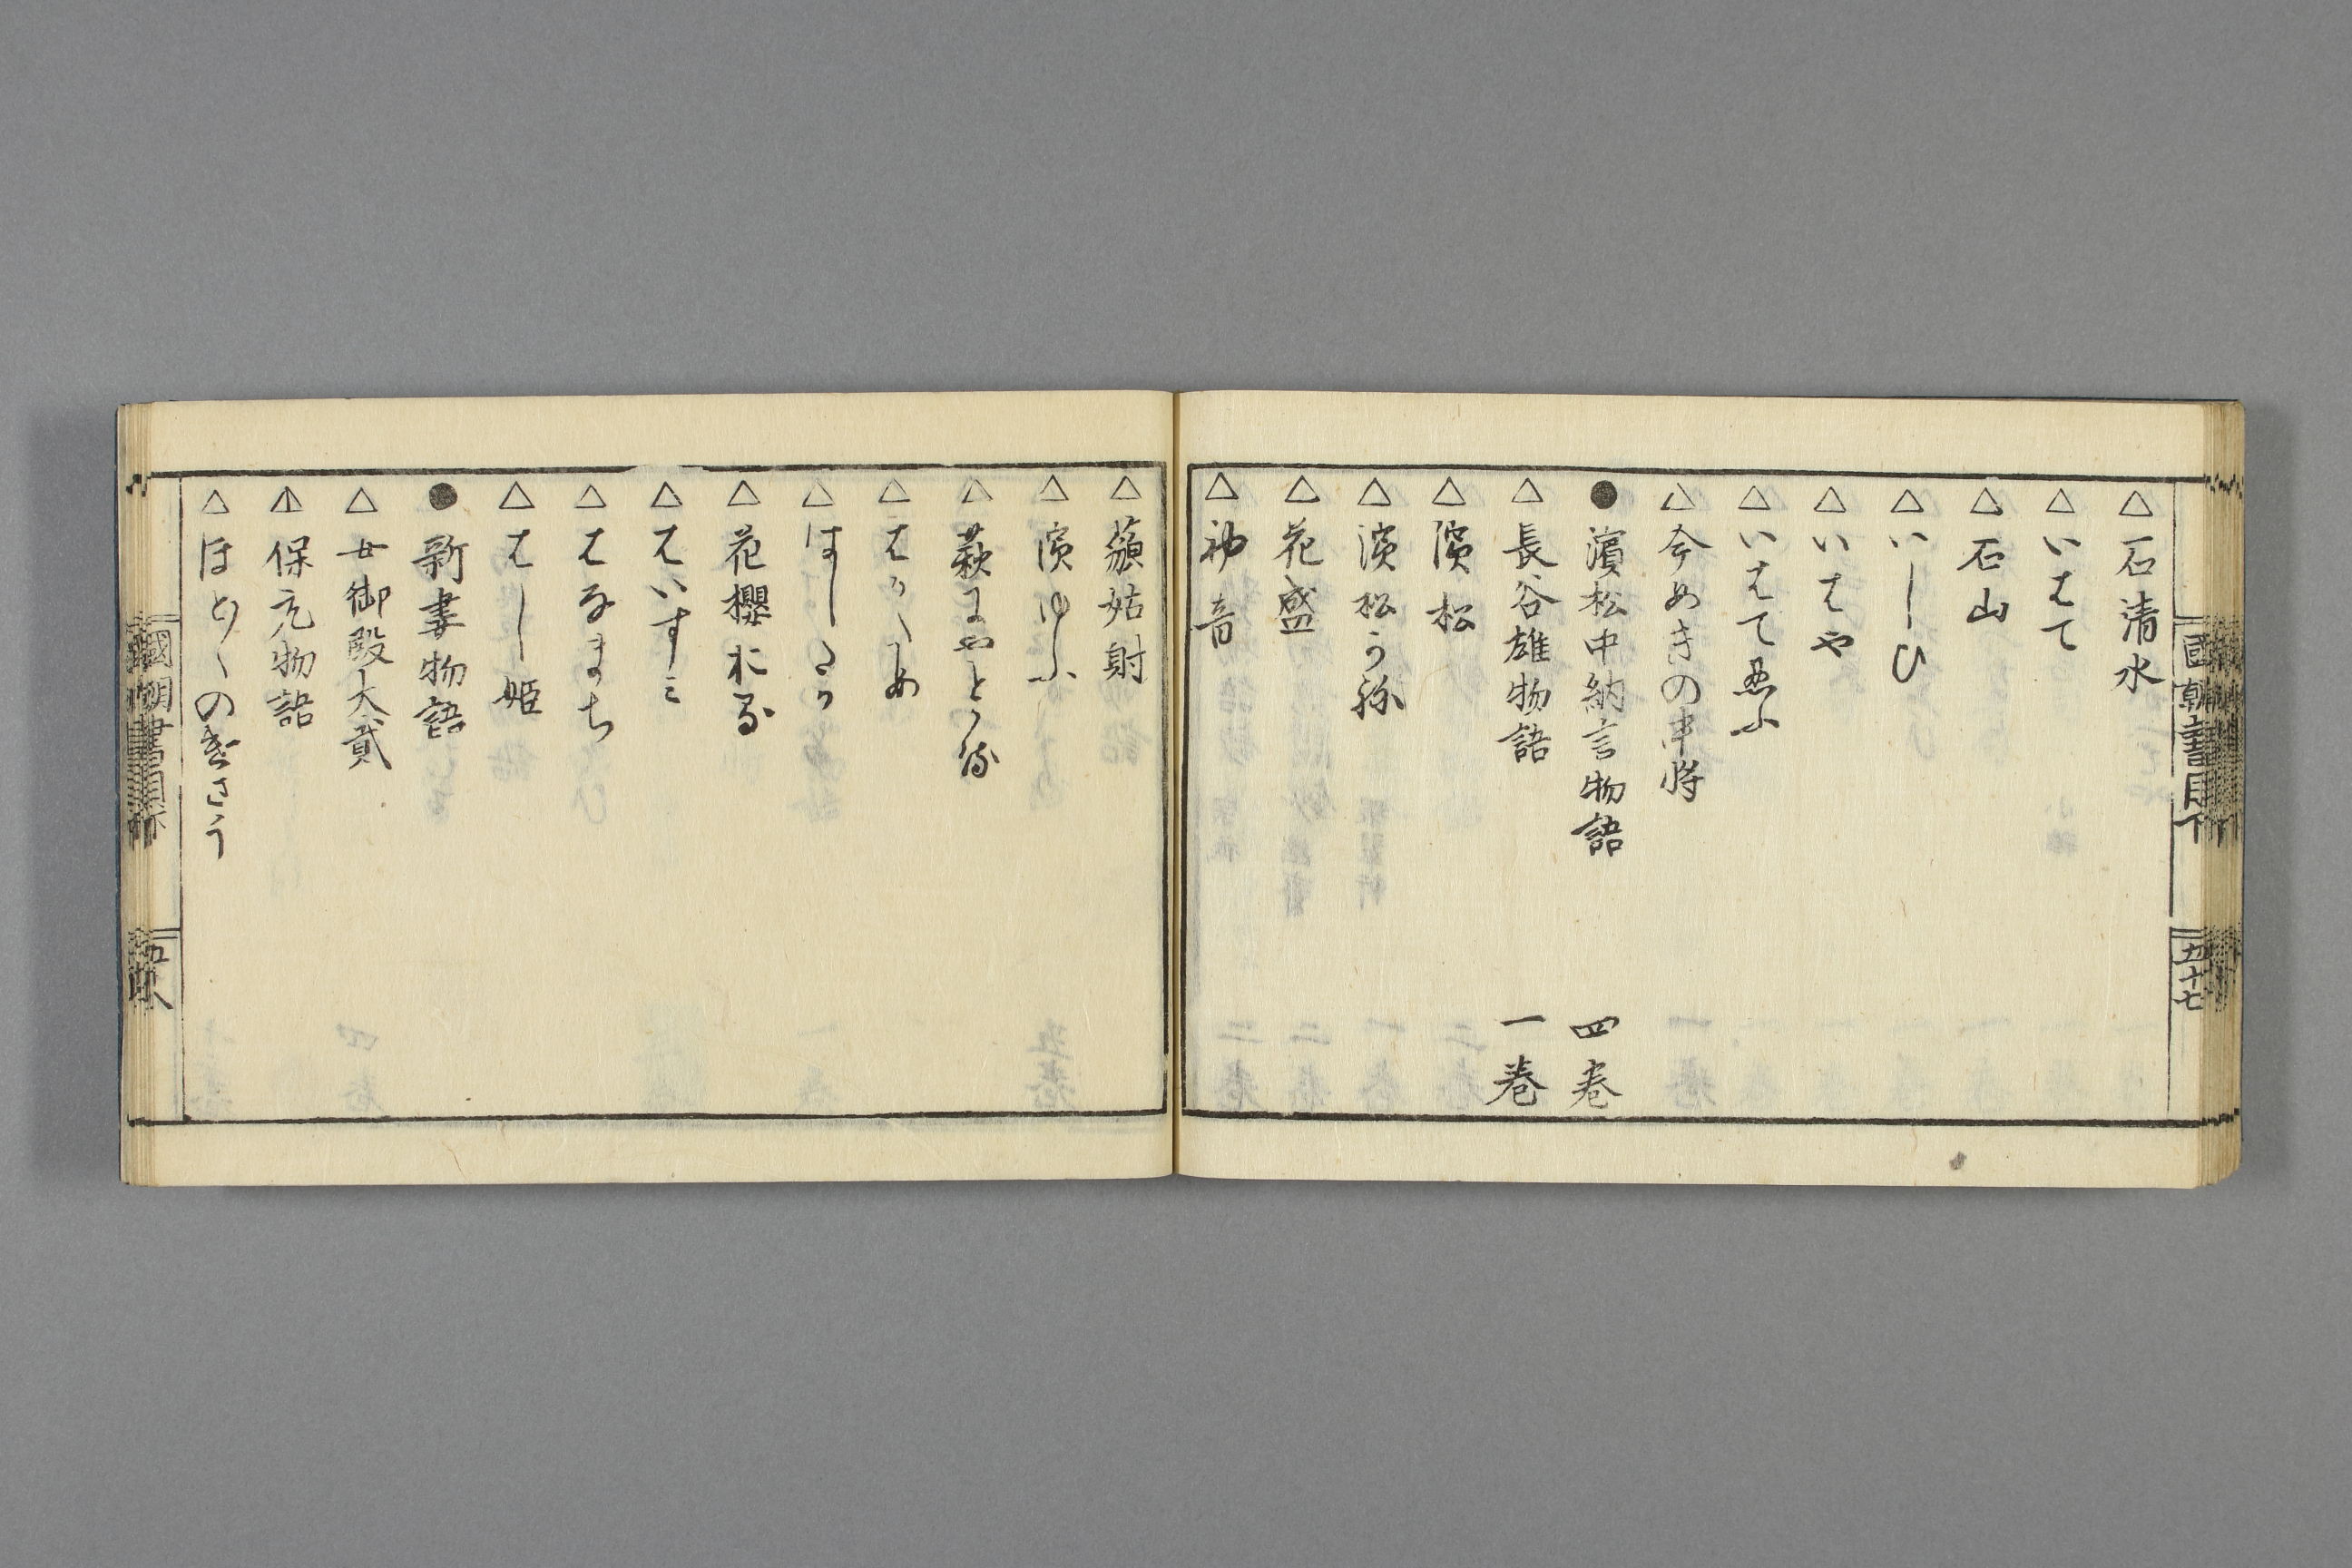 △石清水
△いはて
△石山
△いしひ
△いはや
△いはて忍ふ
△今めきの中将
●濱松中納言物語 四巻
△長谷雄物語 一巻
△濱松
△濱松う
△花盛
△初音
國朝書目下
五十七
△藐姑射
△濱ゆふ
△萩にやとかる
△はかくめ
△はしたか
△花櫻
△はいすミ
△はなまち
△はし姫
●新妻物語
△女御殿大貳
△保元物語
△ほとりのさう
國朝書目下
五十八